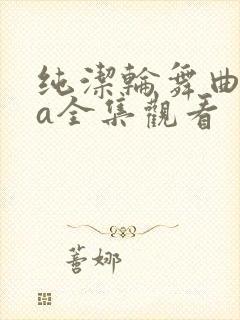 纯潔輪舞曲
a全集觀看
蕾娜